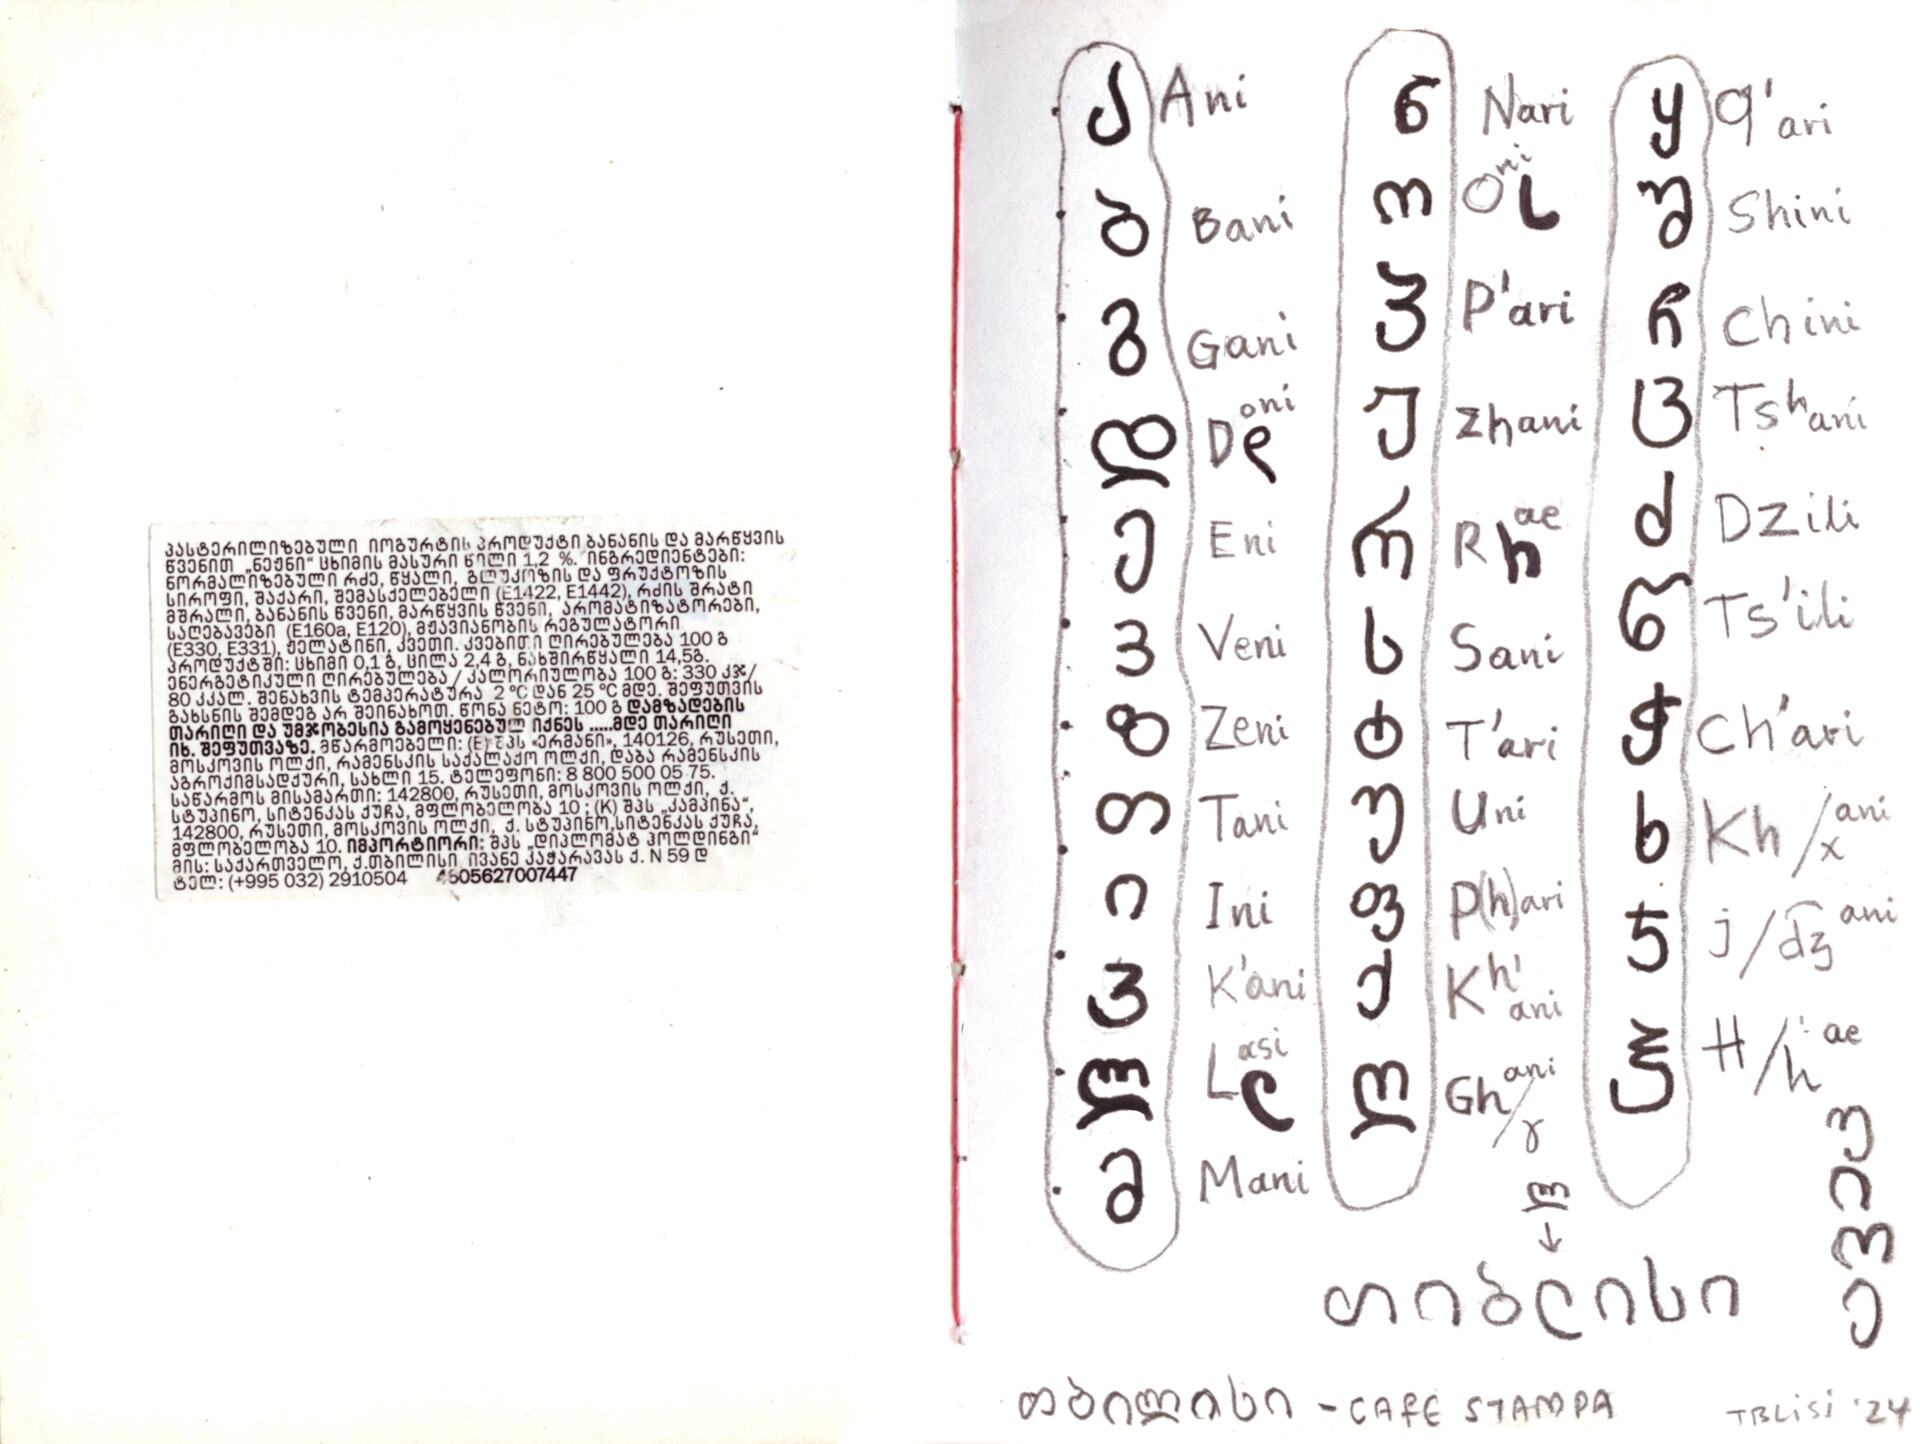 პასტერილიზებული იოგურტის პროდუქტი ბანანის და მარწყვის
წვენით „ნეჟნი“ ცხიმის მასური წილი 1,2 %. ინგრედიენტები:
ნორმალიზებული რძე, წყალი, გლუკოზის და ფრუქტოზის
სიროფი, შაქარი, შემასქელებელი (E1422, E1442), რძის შრატი
მშრალი, ბანანის წვენი, მარწყვის წვენი, არომატიზატორები,
საღებავები (E160a, E120), მჟავიანობის რეგულატორი
(E330, E331), ჟელატინი, კვეთი. კვებითი ღირებულება 100 გ
პროდუქტში: ცხიმი 0,1 გ, ცილა 2,4 გ, ნახშირწყალი 14,5გ.
ენერგეტიკული ღირებულება / კალორიულობა 100 გ: 330 კჯ/
80 კკალ. შენახვის ტემპერატურა 2 °C დან 25 °C მდე. შეფუთვის
გახსნის შემდეგ არ შეინახოთ. წონა ნეტო: 100 გ დამზადების
თარიღი და უმჯობესია გამოყენებულ იქნეს .....მდე თარიღი
იხ. შეფუთვაზე. მწარმოებელი: (E) შპს «ერმანი», 140126, რუსეთი,
მოსკოვის ოლქი, რამენსკის საქალაქო ოლქი, დაბა რამენსკის
აგროქიმსადქური, სახლი 15. ტელეფონი: 8 800 500 05 75.
საწარმოს მისამართი: 142800, რუსეთი, მოსკოვის ოლქი, ქ.
სტუპინო, სიტენკას ქუჩა, მფლობელობა 10 ; (K) შპს „კამპინა“,
142800, რუსეთი, მოსკოვის ოლქი, ქ. სტუპინო,სიტენკას ქუჩა,
მფლობელობა 10. იმპორტიორი: შპს „დიპლომატ ჰოლდინგი“
მის: საქართველო, ქ.თბილისი ივანე კაჭარავას ქ. N 59 დ
ტელ: (+995 032) 2910504 4605627007447
ა Ani
ბ Bani
გ Gani
დ Dოni
ე Eni
ვ Veni
ზ Zeni
თ Tani
ი Ini
კ K'ani
ლ Lasi
მ Mani
ნ Nari
ო Oni
პ P'ari
ჟ zhani
რ Rhae
ს Sani
ტ T'ari
უ Uni
ფ P(h)ari
ქ Kh'ani
ღ Ghani/γ
ყ q'ari
შ Shini
ჩ chini
ც Tshani
ძ Dzili
წ Ts'ili
ჭ ch'ari
ხ Kh/x ani
ჯ j/d͡ʒ ani
ჰ H/h ae
ლ
↓
თიბლისი
თბილისი - CAFE STAMPA
TBLiSi '24